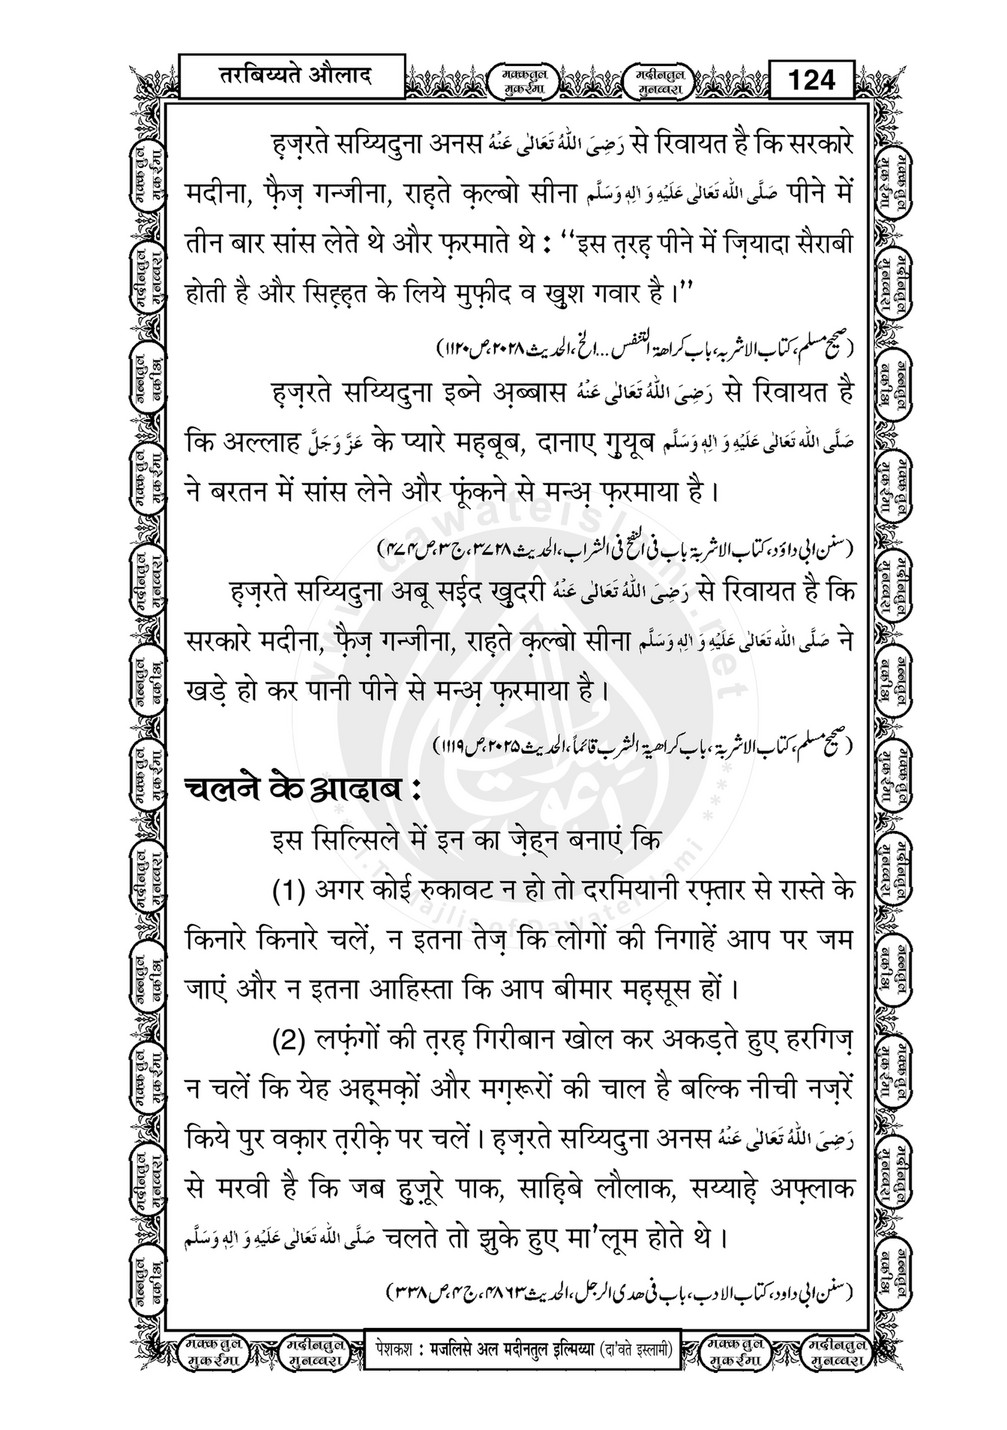 तरबिय्यते औलाद
मक्कतुल मुकर्रमा
मदीनतुल मुनव्वरा
124
ह़ज़रते सय्यिदुना अनस رَضِیَ اللّٰہُ تَعَالٰی عَنْہُ से रिवायत है कि सरकारे
मदीना, फ़ैज़ गन्जीना, राह़ते क़ल्बो सीना صَلَّی اللّٰہ تَعَالٰی عَلَیْہِ وَ اٰلِہٖ وَسَلَّم पीने में
तीन बार सांस लेते थे और फ़रमाते थे : ‘‘इस त़रह़ पीने में ज़ियादा सैराबी
होती है और सिह़्ह़त के लिये मुफ़ीद व खु़श गवार है ।’’
(صحیح مسلم، کتاب الاشربہ، باب کراھۃ التنفس...الخ، الحدیث ۲۰۲۸، ص ۱۱۲۰)
ह़ज़रते सय्यिदुना इब्ने अ़ब्बास رَضِیَ اللّٰہُ تَعَالٰی عَنْہُ से रिवायत है
कि अल्लाह عَزَّ وَجَلَّ के प्यारे मह़बूब, दानाए गु़यूब صَلَّی اللّٰہ تَعَالٰی عَلَیْہِ وَ اٰلِہٖ وَسَلَّم
ने बरतन में सांस लेने और फूंकने से मन्अ़ फ़रमाया है ।
(سنن ابی داؤد، کتاب الاشربۃ باب فی النفخ فی الشراب، الحدیث ۳۷۲۸، ج ۳، ص ۴۷۴)
ह़ज़रते सय्यिदुना अबू सई़द खु़दरी رَضِیَ اللّٰہُ تَعَالٰی عَنْہُ से रिवायत है कि
सरकारे मदीना, फ़ैज़ गन्जीना, राह़ते क़ल्बो सीना صَلَّی اللّٰہ تَعَالٰی عَلَیْہِ وَ اٰلِہٖ وَسَلَّم ने
खड़े हो कर पानी पीने से मन्अ़ फ़रमाया है ।
(صحیح مسلم، کتاب الاشربۃ، باب کراھیۃ الشرب قائماً، الحدیث ۲۰۲۵، ص ۱۱۱۹)
चलने के आदाब :
इस सिल्सिले में इन का ज़ेह्न बनाएं कि
(1) अगर कोई रुकावट न हो तो दरमियानी रफ़्तार से रास्ते के
किनारे किनारे चलें, न इतना तेज़ कि लोगों की निगाहें आप पर जम
जाएं और न इतना आहिस्ता कि आप बीमार मह़सूस हों ।
(2) लफ़ंगों की त़रह़ गिरीबान खोल कर अकड़ते हुए हरगिज़
न चलें कि येह अह़्मक़ों और मग़रूरों की चाल है बल्कि नीची नज़रें
किये पुर वक़ार त़रीके़ पर चलें । ह़ज़रते सय्यिदुना अनस رَضِیَ اللّٰہُ تَعَالٰی عَنْہُ
से मरवी है कि जब हु़ज़ूरे पाक, साह़िबे लौलाक, सय्याह़े अफ़्लाक
صَلَّی اللّٰہ تَعَالٰی عَلَیْہِ وَ اٰلِہٖ وَسَلَّم चलते तो झुके हुए मा'लूम होते थे ।
(سنن ابی داود، کتاب الادب، باب فی ھدی الرجل، الحدیث ۴۸۶۳، ج ۴، ص ۳۳۸)
मक्कतुल मुकर्रमा
मदीनतुल मुनव्वरा
पेशकश : मजलिसे अल मदीनतुल इल्मिय्या (दा'वते इस्लामी)
मक्कतुल मुकर्रमा
मदीनतुल मुनव्वरा